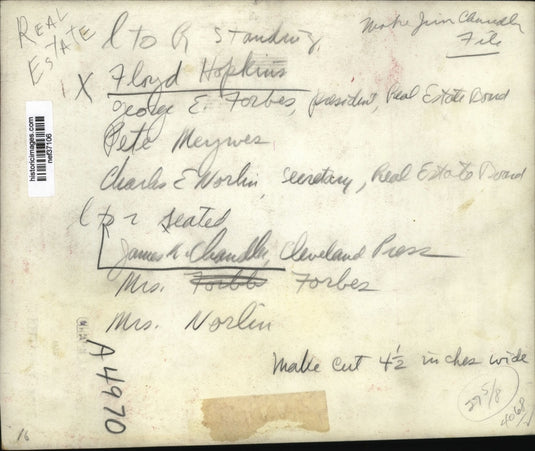 REAL
ESTATE
Make Jim Chandler
File
L to R Standing
1 X Floyd Hopkins
George E. Forbes, president, Real Estate Board
Pete Meyers
Charles E Norlin, secretary, Real Estate Board
L to R seated
James R. Chandler, Cleveland Press
Mrs. Forbbs Forbes
Mrs. Norlin
Make cut 4½ inches wide
A4970
27 5/8
4068
16
historicimages.com
nef37106